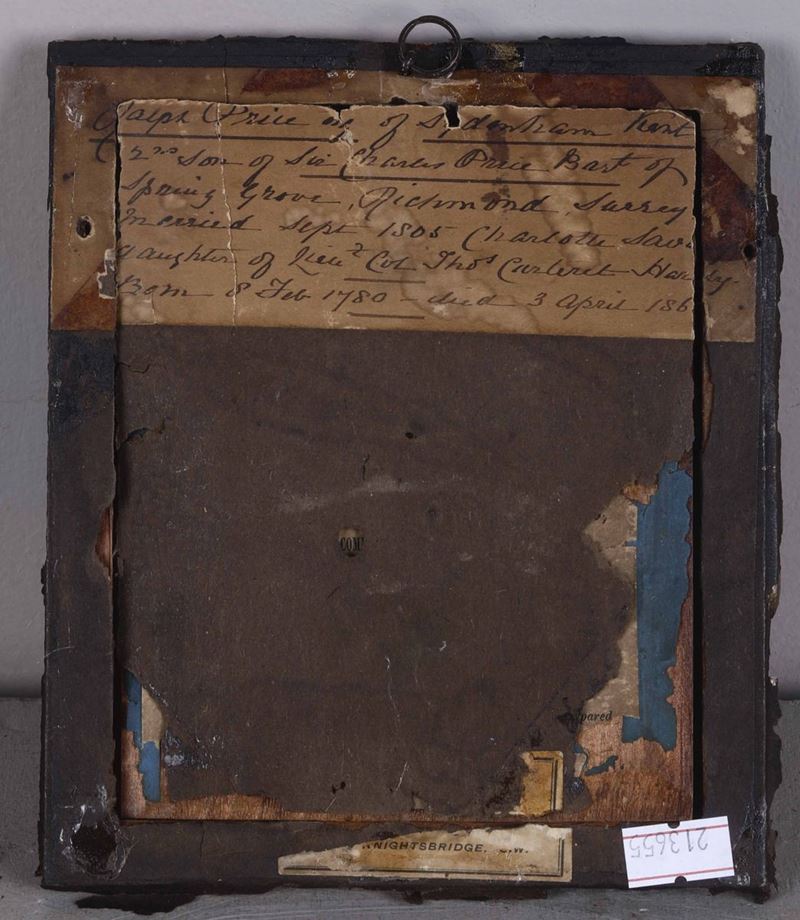 Ralph Price Esq of Sydenham Kent
2nd Son of Sir Charles Price Bart of
Spring Grove, Richmond, Surrey
Married Sept 1805 Charlotte Sav
daughter of Lieut Col Thos Carteret Hardy.
Born 8 Feb 1780 - died 3 April 186
COM
pared
KNIGHTSBRIDGE, S.W.
213655